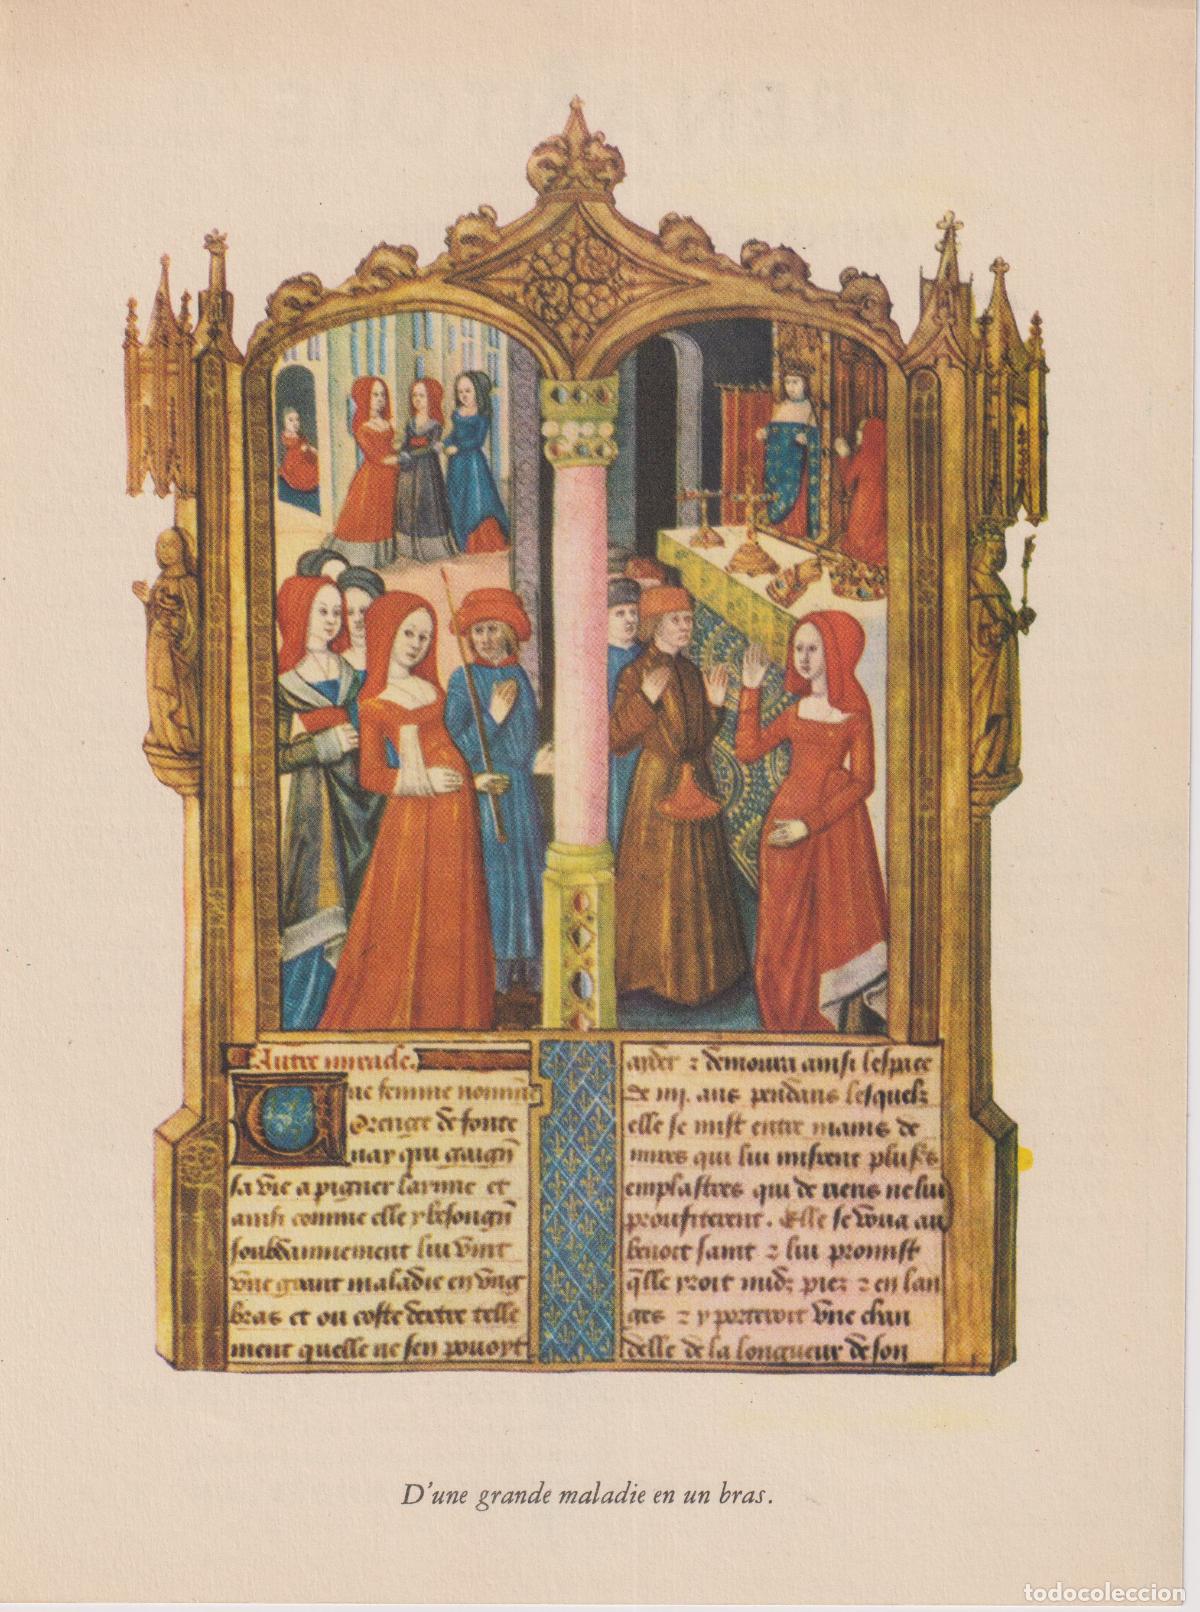 Autre miracle.
Une femme nommee
Orenge de fonte
nay qui gaign
sa vie a pigner larme et
ainsi comme elle y besongn
soubdainnement lui vint
vne grant maladie en vng
bras et ou coste dextre telle
ment quelle ne sen pouoyt
aider ⁊ demoura ainsi lespace
de iiij. ans pendans lesquelz
elle se mist entre mains de
mires qui lui misrent plusrs
emplastres qui de riens ne lui
proufiterent. Elle se voua au
benoit saint ⁊ lui promist
qlle yroit nudz piez ⁊ en lan
ges ⁊ y porteroit vne chan
delle de la longueur de son
D'une grande maladie en un bras.
todocoleccion